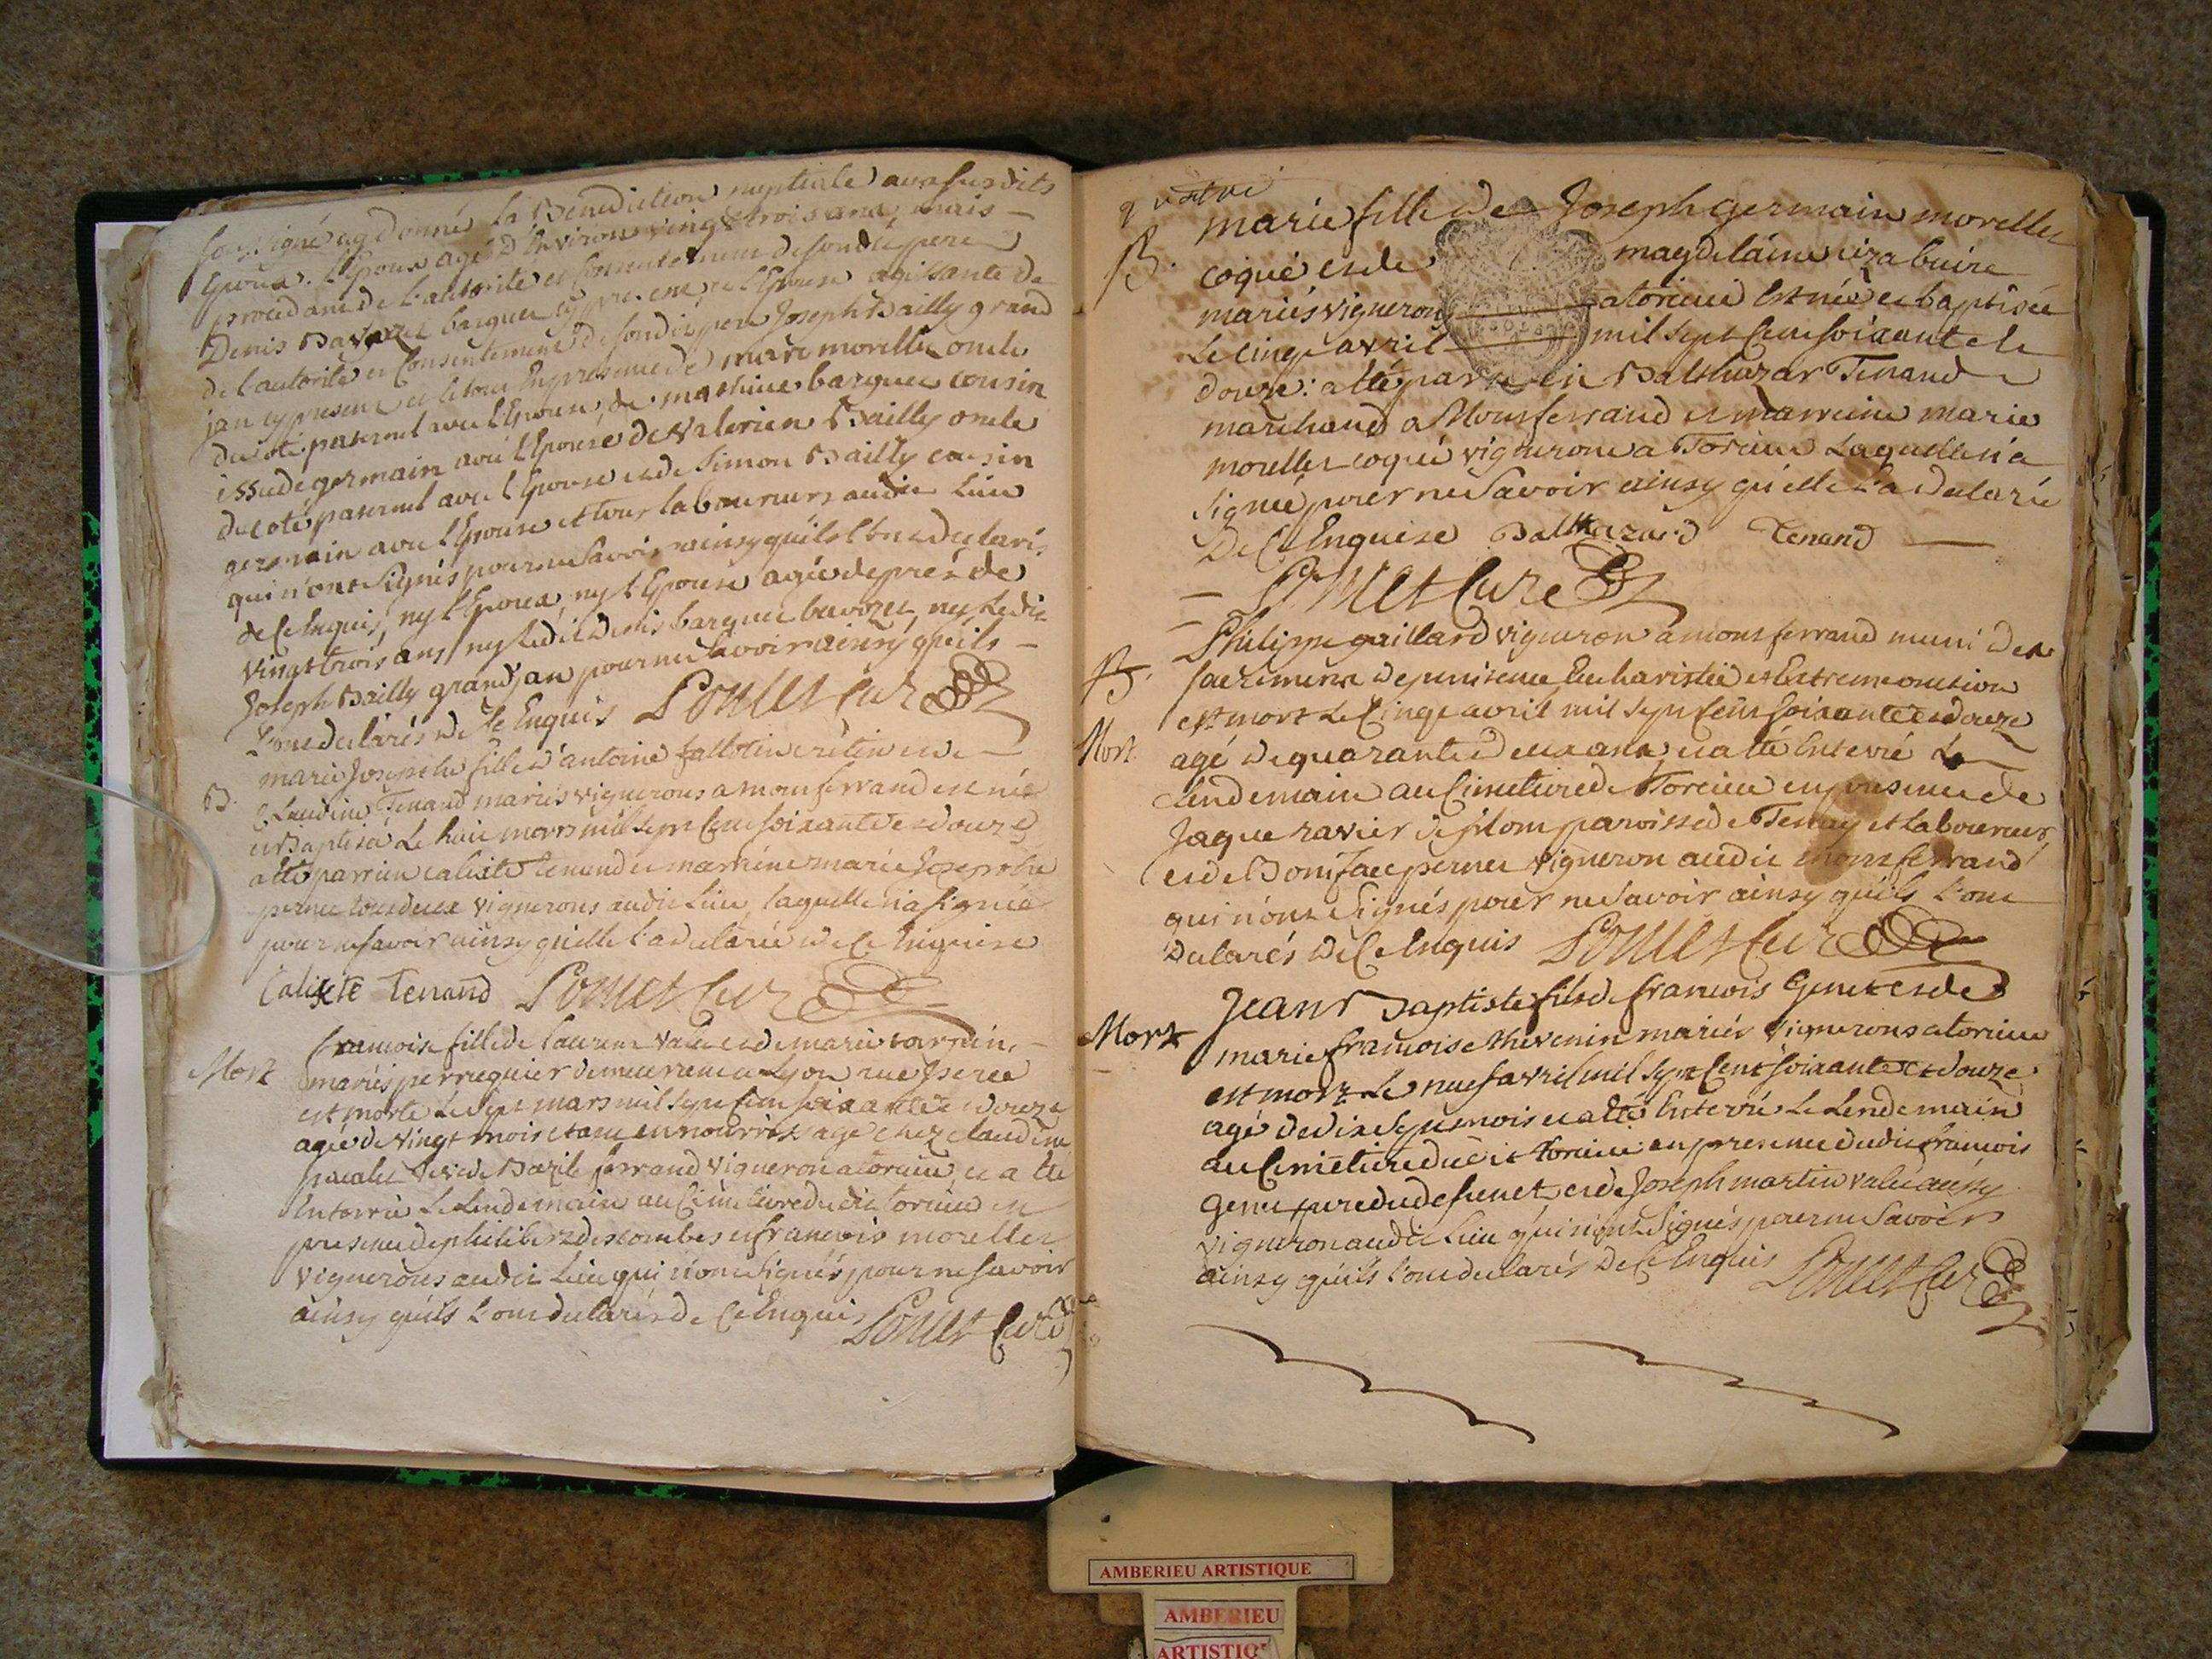 soussigné ay donné la Benediction nuptiale aux susdits
Epoux. l'Epoux agé d'environ vingt trois ans, mais
procedant de l'autorité et consentement de son dit pere
Denis barquet cy present, et l'Epouse agissante de
de l'autorité et Consentement de son dit pere Joseph Bailly grand
jan cy present et le tout En presence de marc morellet oncle
du coté paternel avec l'Epouse, de mathieu barquet cousin
issu de germain avec l'Epouse de Valerien Bailly oncle
du coté paternel avec l'Epouse et de Simon Bailly cousin
germain avec l'Epouse et tous laboureurs audit Lieu
qui n'ont Signés pour ne Savoir ainsy qu'ils l'ont declarés
de Ce Enquis, ny l'Epoux, ny l'Epouse agée de près de
vingt trois ans, ny Ledit Denis barquet bavozet, ny Ledit
Joseph Bailly grand jan pour ne Savoir ainsy qu'ils
l'ont declarés de Ce Enquis Pomet Curé
B. marie Josephe fille d'antoine fallotin cretin et de
Claudine Tenand mariés vignerons a montferrand est née
et Baptisée Le huit mars mil sept Cent soixante et douze
a été parrin caliste tenand et marreine marie Josephe
pernet tous deux vignerons audit Lieu, laquelle n'a signée
pour ne savoir ainsy qu'elle l'a declarée de Ce Enquise
Calixte Tenand Pomet Curé
Mort francoise fille de laurent et de marie
mariés perruquier demeurant a Lyon rue
est morte Le sept mars mil sept Cent soixante et douze
agée de vingt mois etant en nourrissage chez claudine
de Bazile ferrand Vigneron a torcieu, et a été
Enterrée Le Lendemain au Cimetiere dudit torcieu en
presence de philibert descombes et francois morellet
vignerons audit Lieu qui n'ont Signés pour ne savoir
ainsy qu'ils l'ont declarés de Ce Enquis Pomet Curé
quatre
B. marie fille de Joseph germain morellet
coqué et de magdelaine
mariés vignerons a torcieu est née et baptisée
Le cinq avril mil sept Cent soixante et
douze: a été parrein Balthazar Tenand
marchand a Montferrand et marreine marie
morellet coqué vigneronne a Torcieu Laquelle n'a
signée pour ne Savoir ainsy qu'elle l'a declarée
De Ce Enquise Balthazard Tenand
Pomet Curé
Philippe gaillard vigneron a montferrand muni des
sacremens de penitence Eucharistie et Extremeonction
Mort est mort Le Cinq avril mil sept Cent soixante et douze
agé de quarante deux ans, et a été Enterré Le
Lendemain au Cimetiere de Torcieu en presence de
Jaque ravier de paroisse de Tenay et laboureur
et de Boniface pernet vigneron audit montferrand
qui n'ont Signés pour ne Savoir ainsy qu'ils l'ont
declarés de Ce Enquis Pomet Curé
Mort Jean Baptiste fils de francois Genet et de
marie francoise thevenin mariés vignerons a torcieu
est mort Le neuf avril mil sept Cent soixante et douze
agé de dix sept mois et a été Enterré Le Lendemain
au Cimetiere dudit torcieu en presence dudit francois
Genet pere du defunet, et de Joseph martin aussy
vigneron audit Lieu qui n'ont Signés pour ne Savoir
ainsy qu'ils l'ont declarés de Ce Enquis Pomet Curé
AMBERIEU ARTISTIQUE
AMBERIEU
ARTISTIQ